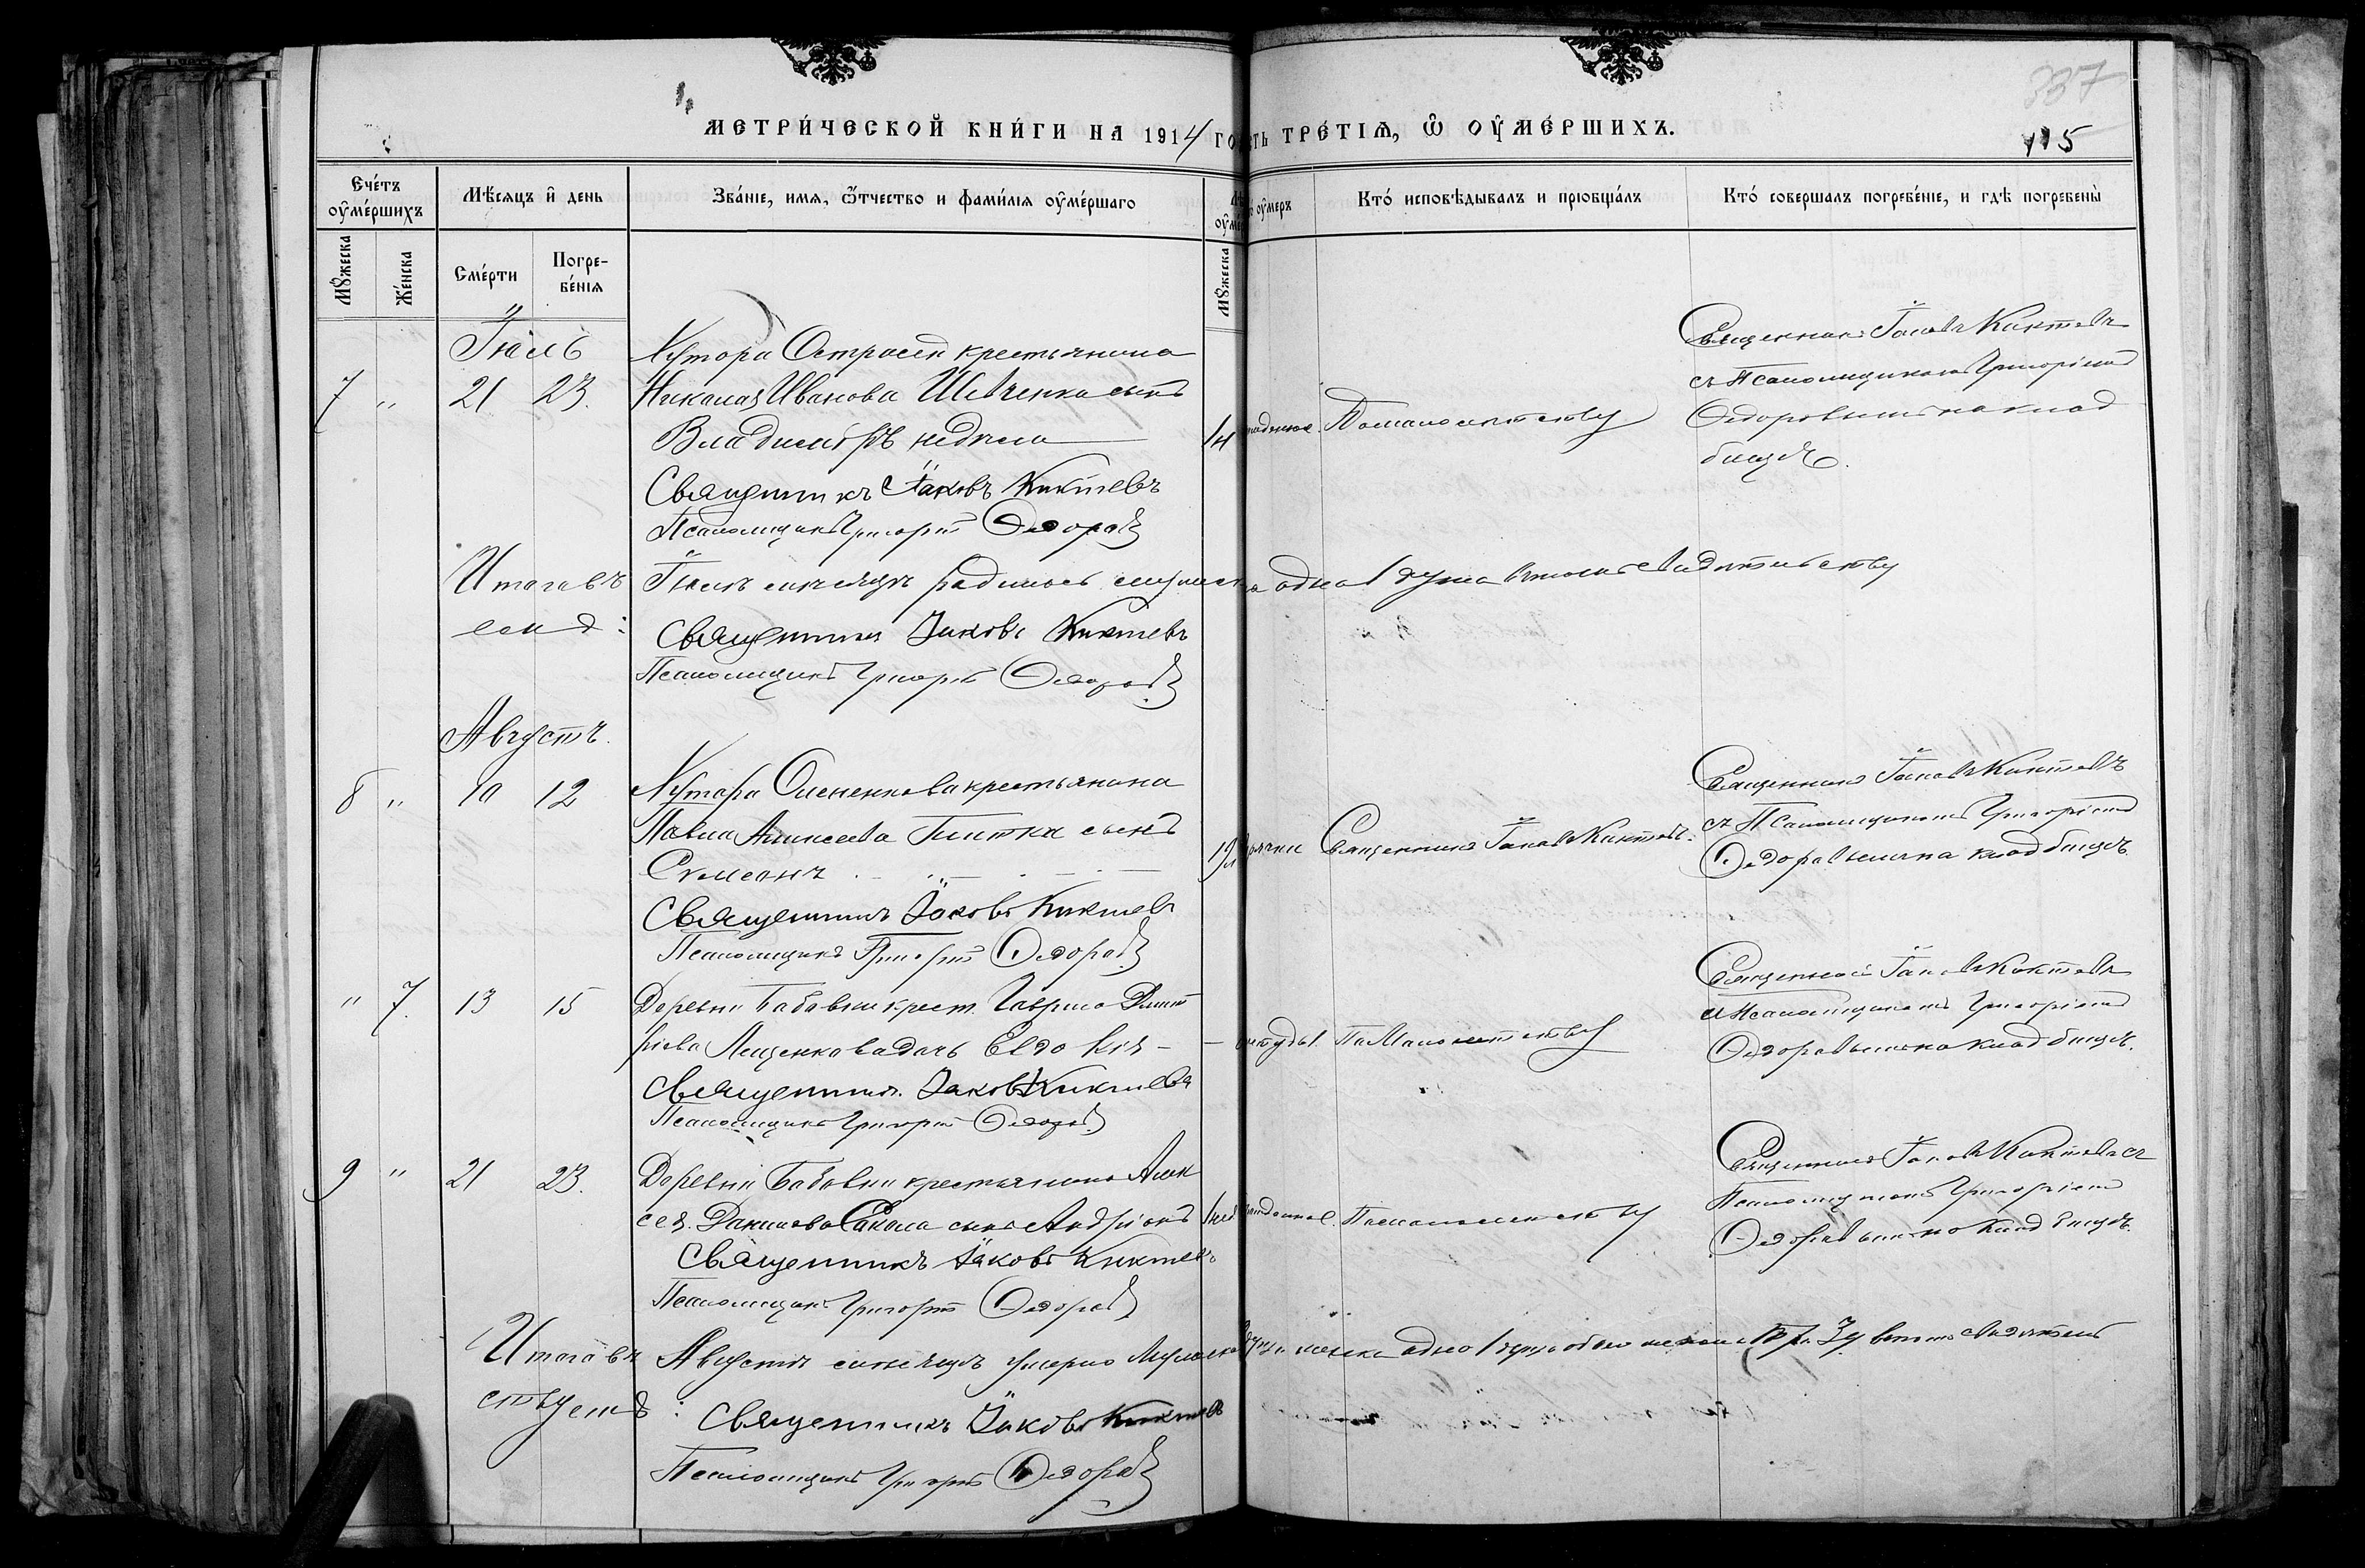 337
МЕТРИ́ЧЕСКОЙ КНИ́ГИ НА 1914 ГО
СТЬ ТРЕ́ТІѦ, Ѽ ОУ҆МЕ́РШИХЪ.
115
Сче́тъ оу҆ме́ршихъ
Мѣ́сяцъ и҆ день
Зва́ніе, имѧ, ѻ҆́тчество и фами́лія оу҆ме́ршаго
Кто́ исповѣ́дывалъ и пріобща́лъ
Кто́ совершалъ погребе́ніе, и гдѣ̀ погребены̀
Мꙋ́жеска
Же́нска
Сме́рти
Погре-
бе́нія
Мꙋ́жеска
оу҆меръ
Іюль
Хутора крестьянина
7 " 21 23.
Николая Иванова Шевченка сынъ
Владиміръ
Священникъ Іаковъ Киктевъ
Псаломщикъ Григорій Ѳедоровъ
По малолетству
Священникъ Іаковъ Киктевъ
съ Псаломщикомъ Григоріемъ
Ѳедоровымъ на клад
бищѣ.
Итого въ Іюлѣ мѣсяцѣ одна 1 душа въ томъ свидѣтельству
емъ:
Священникъ Іаковъ Киктевъ
Псаломщикъ Григорій Ѳедоровъ
Августъ.
8 " 10 12
Хутора крестьянина
Павла Алексеева сынъ
Симеонъ
Священникъ Іаковъ Киктевъ
Псаломщикъ Григорій Ѳедоровъ
Священникъ Іаковъ Киктевъ.
Священникъ Іаковъ Киктевъ
съ Псаломщикомъ Григоріемъ
Ѳедоровымъ на кладбищѣ.
" 7. 13 15
Деревни Бабовки крест. Гавріила Дмит
ріева Лещенкова дочь Евдокія -
Священникъ Іаковъ Киктевъ
Псаломщикъ Григорій Ѳедоровъ
По Малолетству
Священникъ Іаковъ Киктевъ
съ Псаломщикомъ Григоріемъ
Ѳедоровымъ на кладбищѣ.
9 " 21 23.
Деревни Бабовки крестьянина Алек
сея Данилова сынъ Андріанъ
Священникъ Іаковъ Киктевъ
Псаломщикъ Григорій Ѳедоровъ
По малолетству
Священникъ Іаковъ Киктевъ съ
Псаломщикомъ Григоріемъ
Ѳедоровымъ на кладбищѣ.
Итого въ Августѣ мѣсяцѣ умерло Мужеска женска одна 1 обоего въ томъ свидѣтель
ствуемъ:
Священникъ Іаковъ Киктевъ
Псаломщикъ Григорій Ѳедоровъ